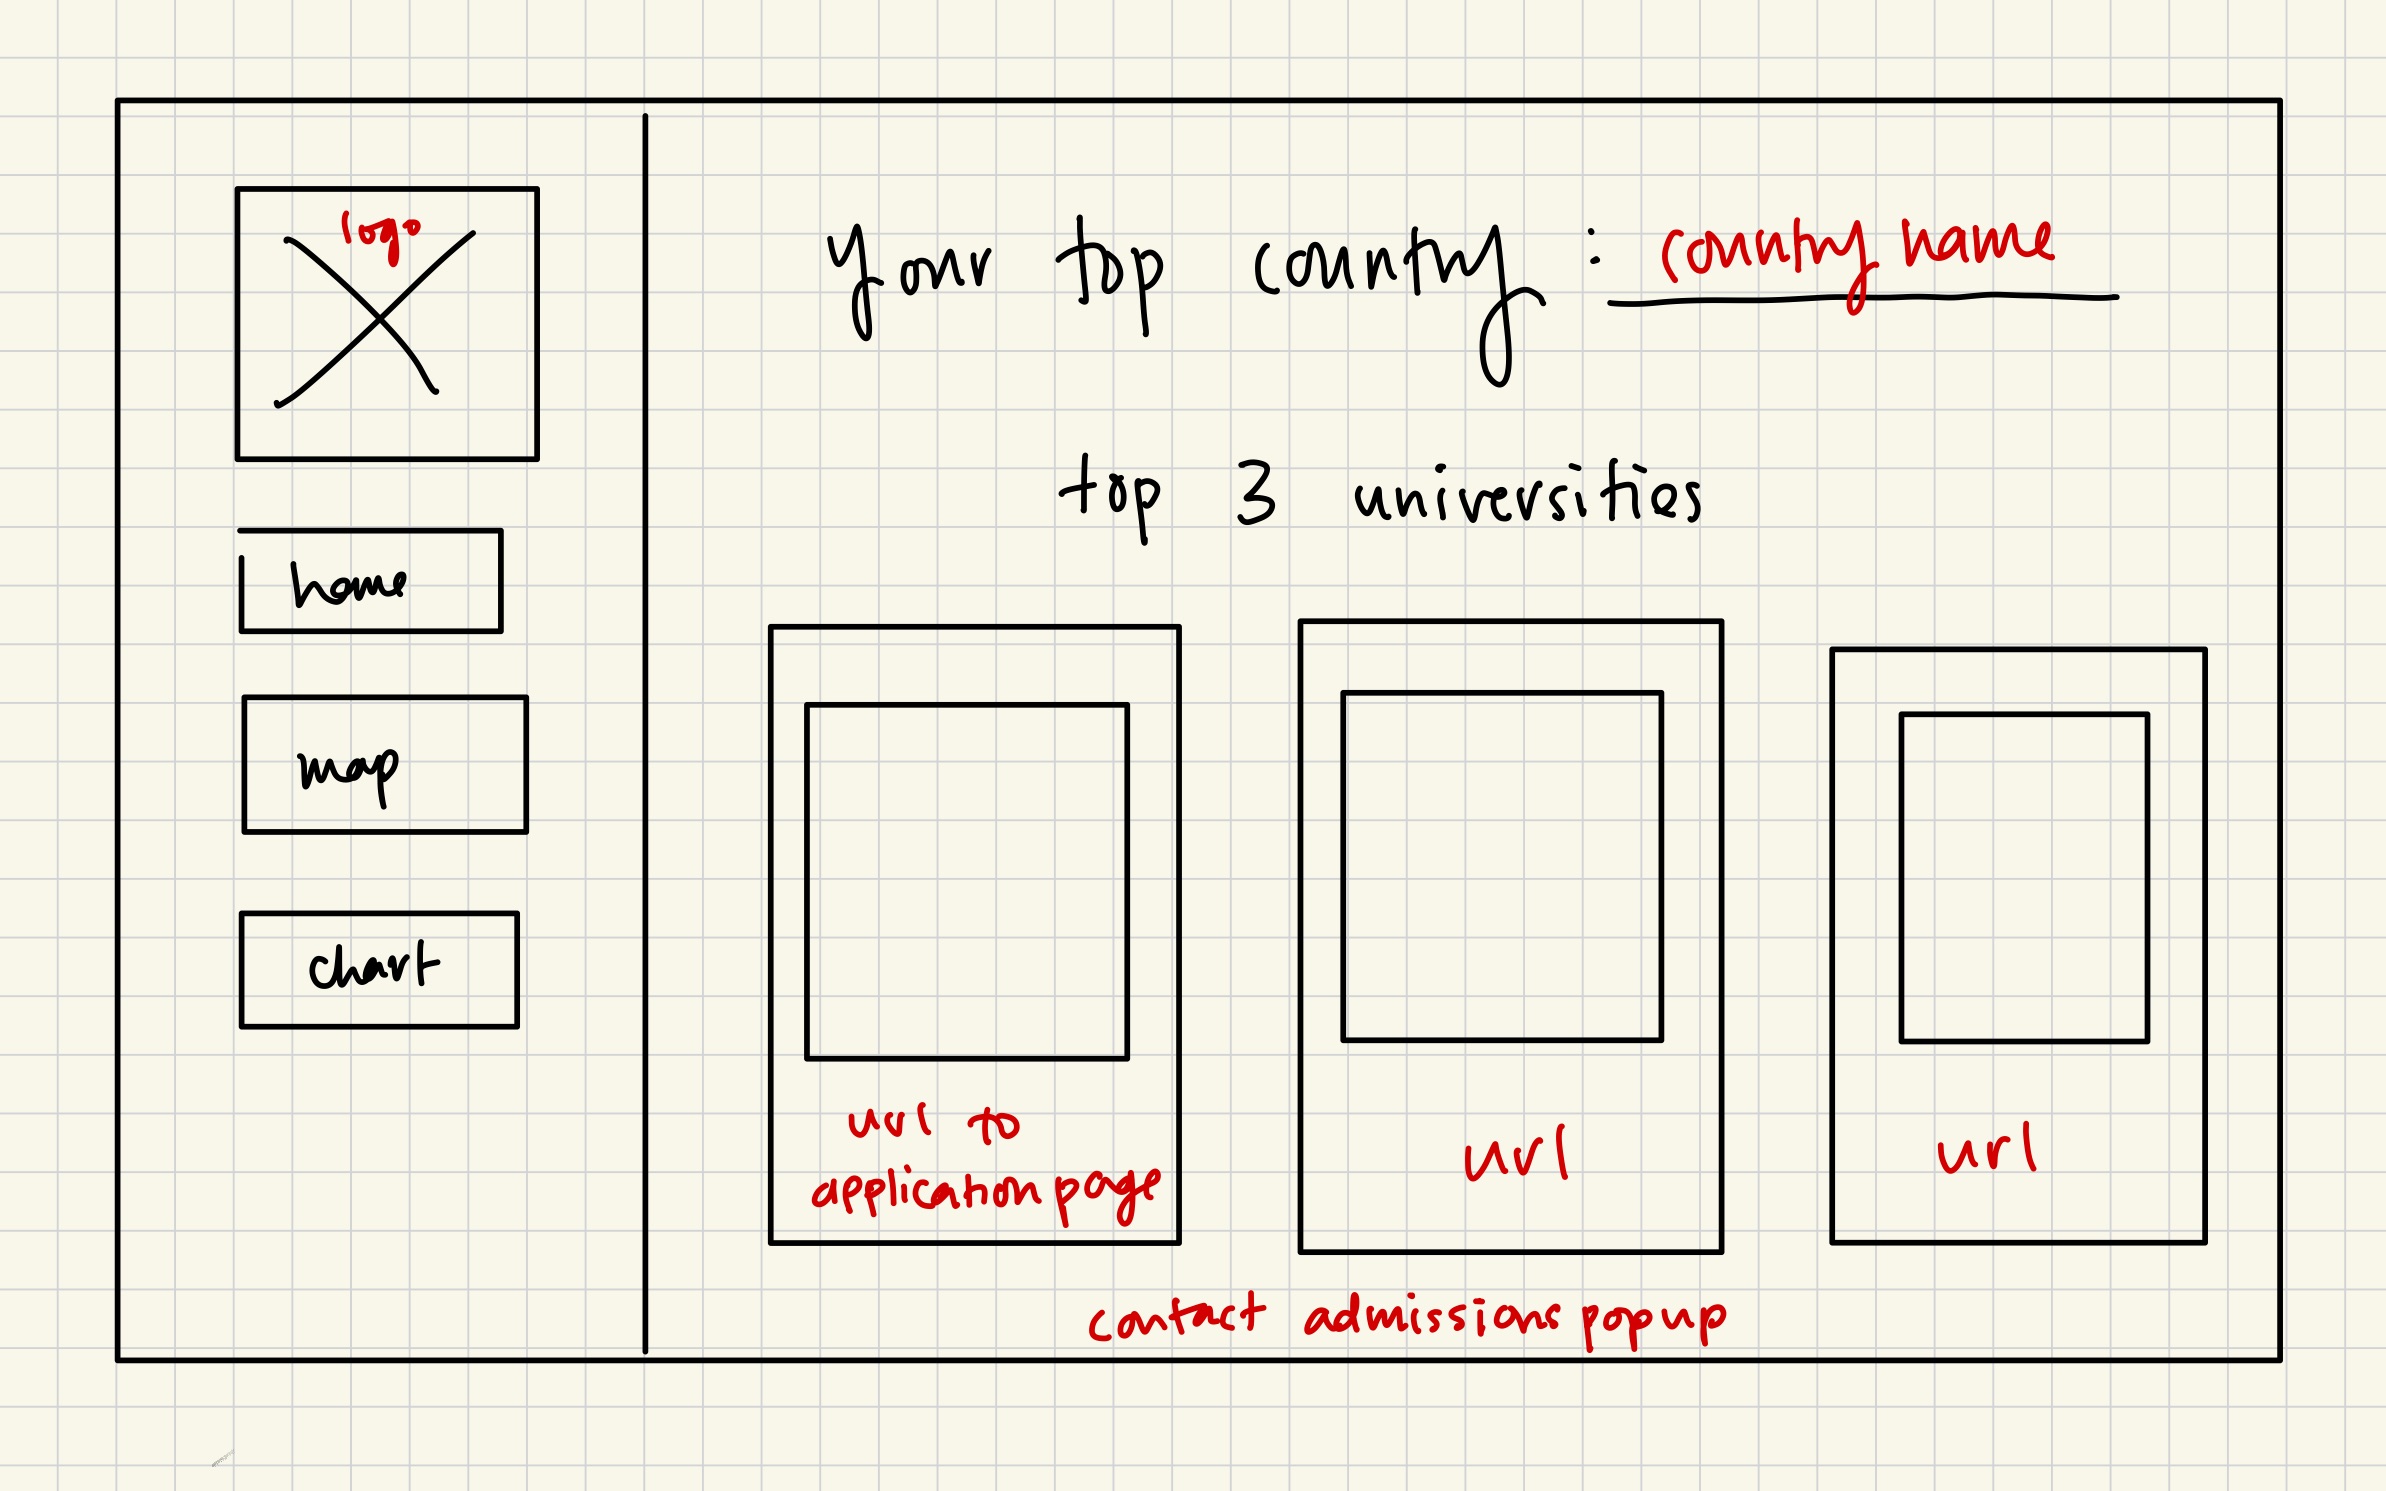 logo
home
map
chart
your top country : country name
top 3 universities
url to
application page
url
url
contact admissions popup